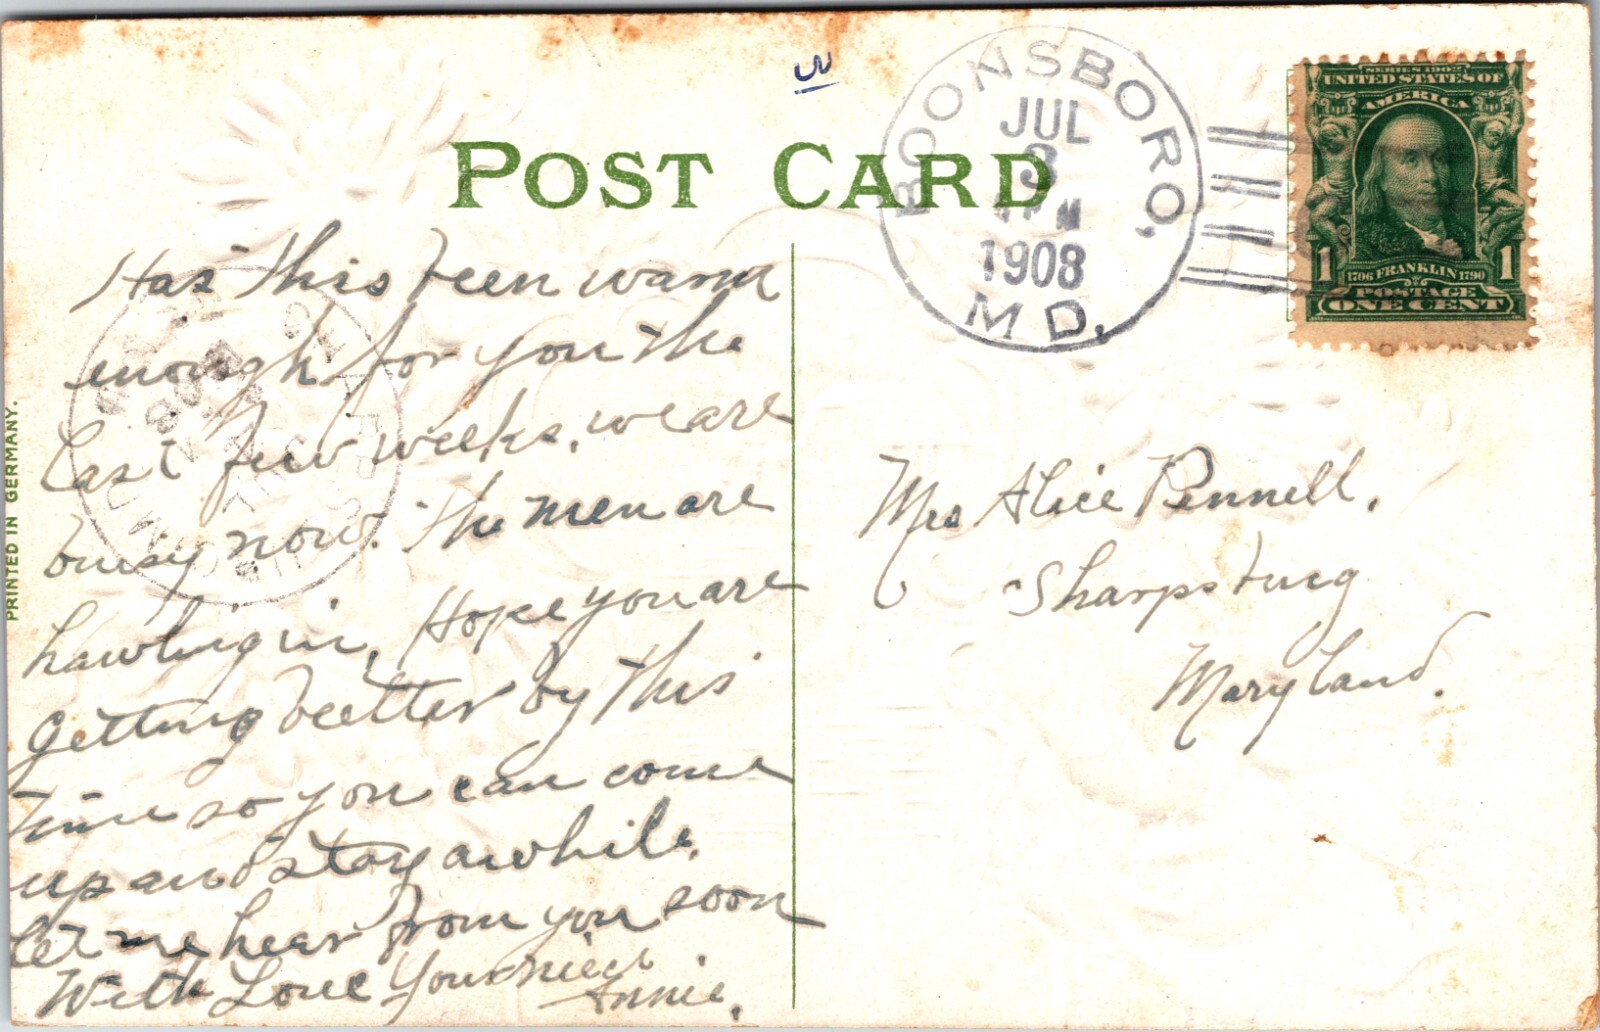 POST CARD
3
BOONSBORO,
JUL
3
PM
1908
MD.
SERIES 1902
UNITED STATES OF
AMERICA
1 1
1706 FRANKLIN 1790
POSTAGE
ONE CENT
PRINTED IN GERMANY.
Has this been warm
enough for you the
last few weeks, we are
busy now. The men are
hawling in, Hope you are
getting better by this
time so you can come
up and stay awhile,
let me hear from you soon
With Love Your niece
Annie.
Mrs Alice Pennell,
Sharpsburg
Maryland.